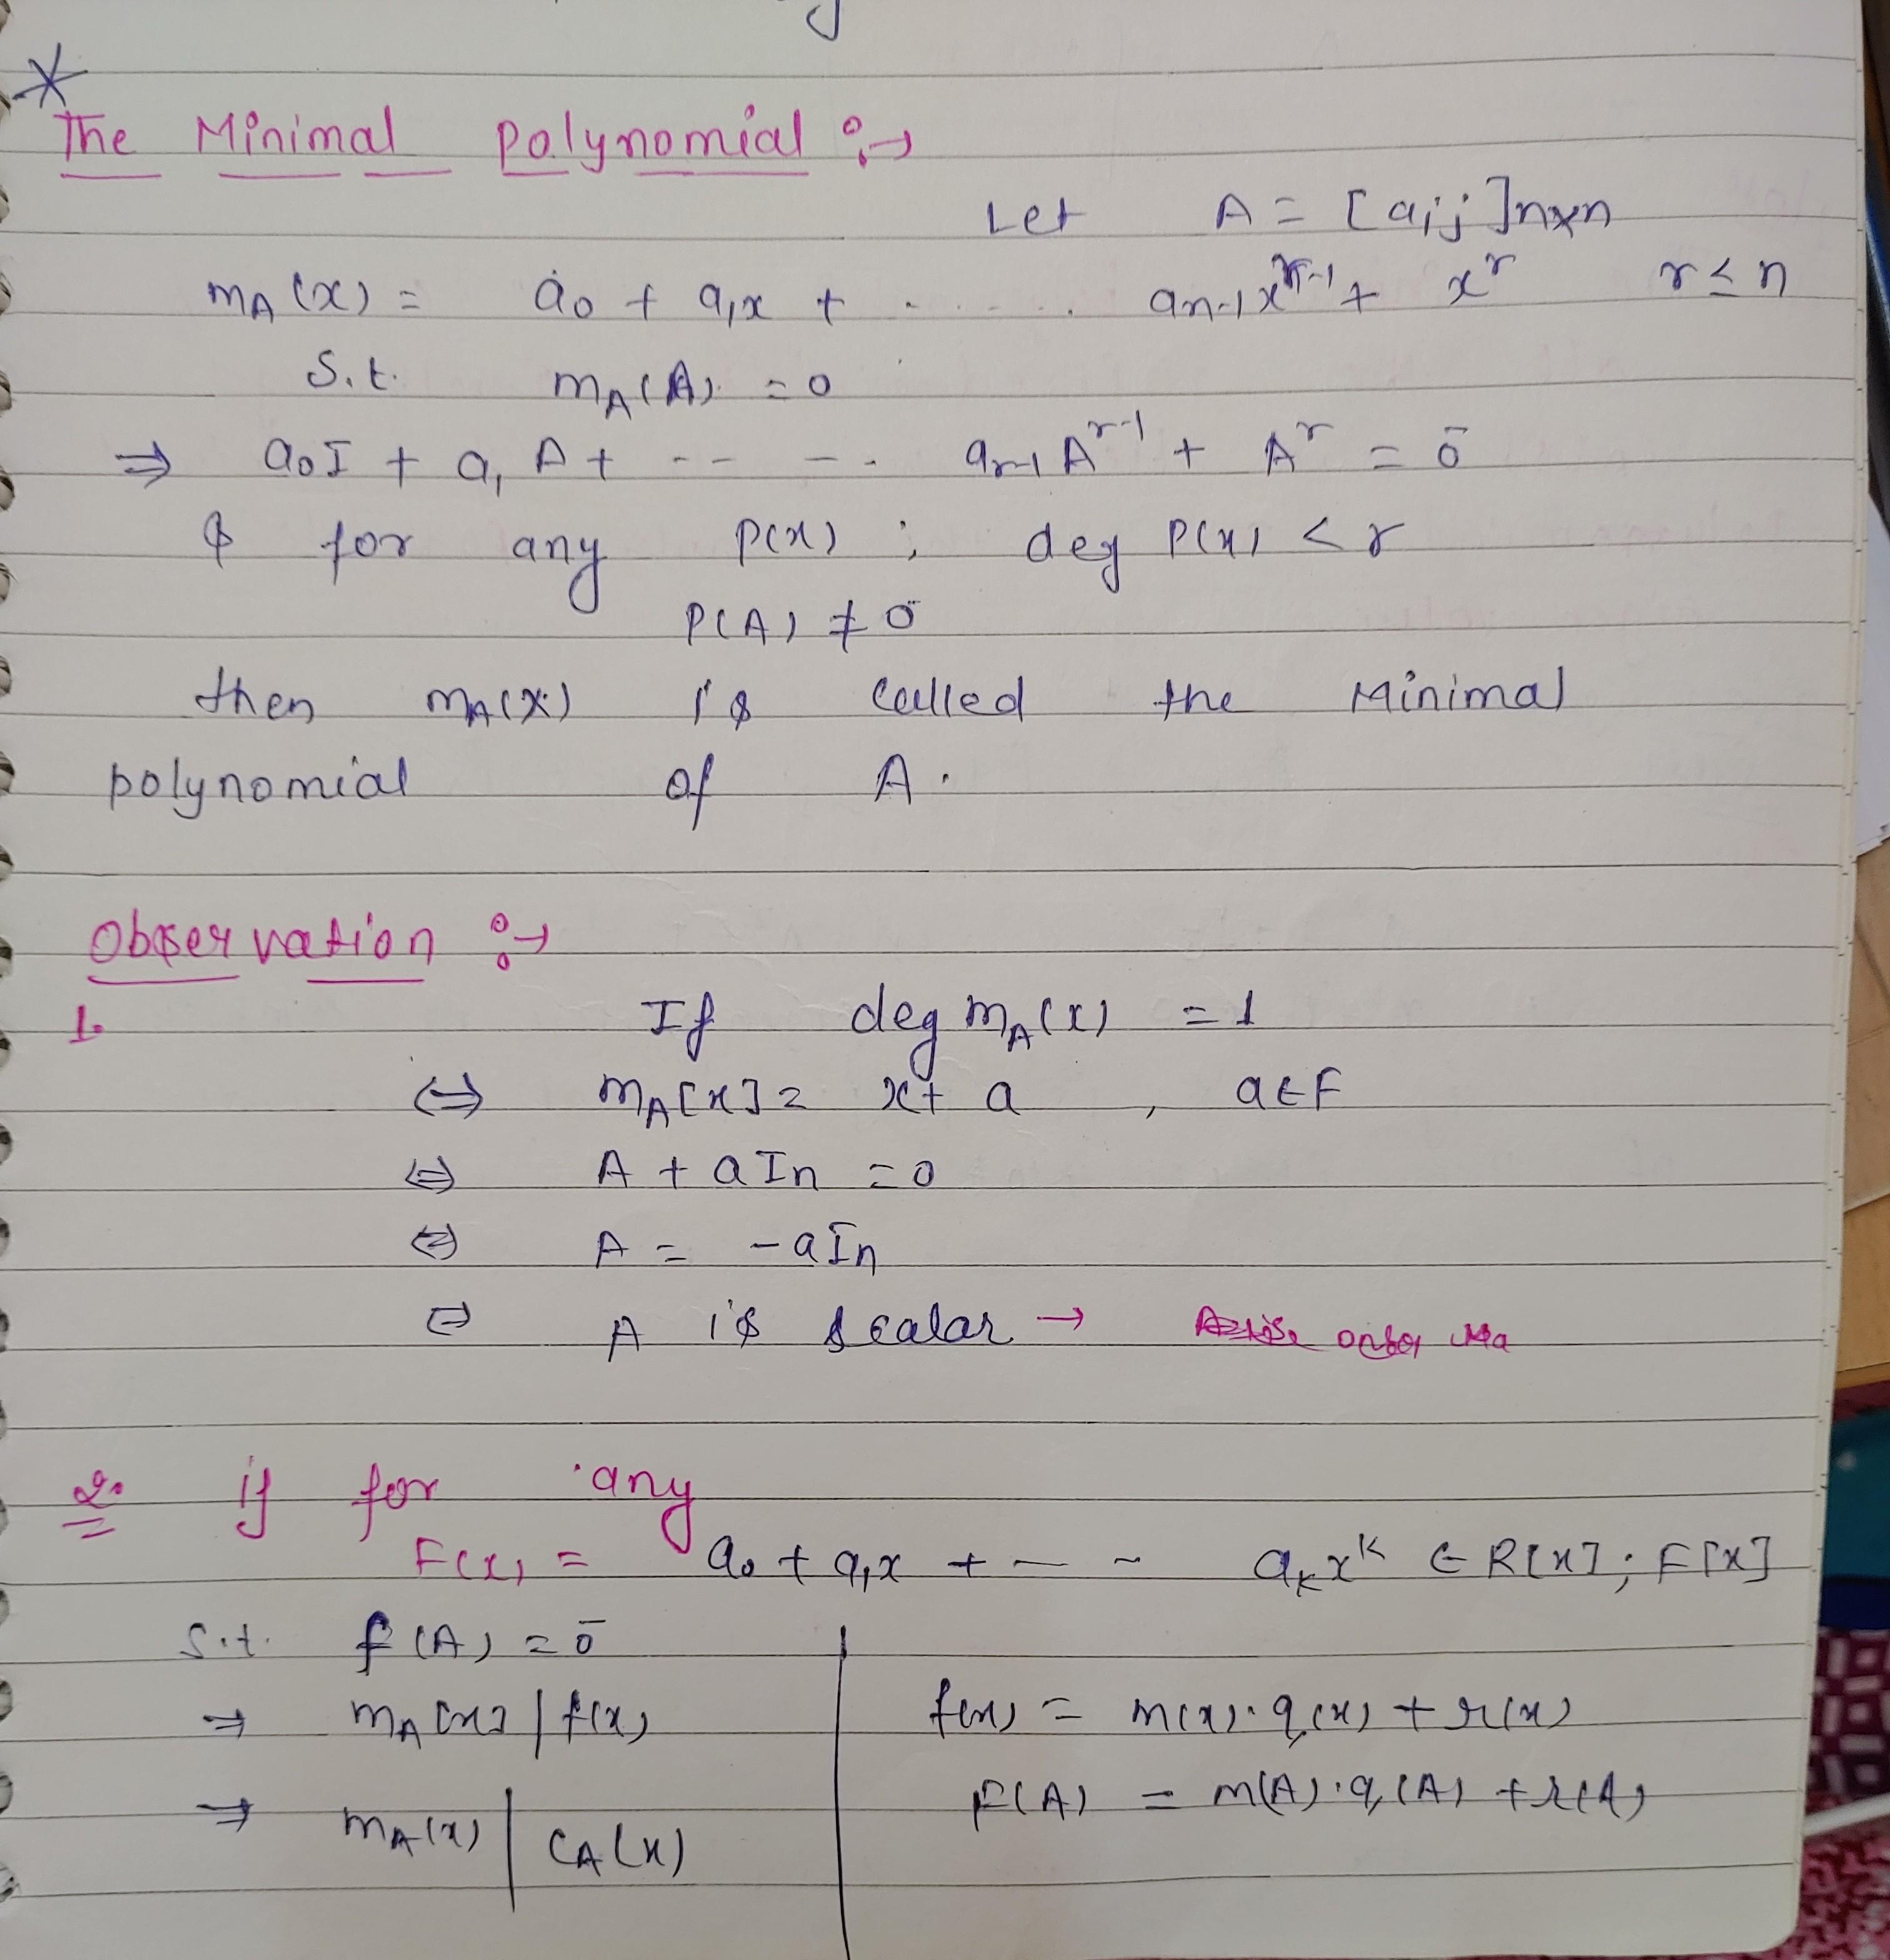 *
The Minimal Polynomial :→
Let A = [aij]n×n
mA(x) = a0 + a1x + ..... an-1x^r-1 + x^r r ≤ n
S.t. mA(A) = 0
⇒ a0I + a1A + -- -- ar-1A^r-1 + A^r = 0̄
& for any P(x) ; deg P(x) < r
P(A) ≠ 0̄
then mA(x) is called the Minimal
polynomial of A.
Observation :→
1. If deg mA(x) = 1
⇔ mA[x] = x + a , a ∈ F
⇔ A + aIn = 0
⇔ A = -aIn
⇔ A is scalar →
2. if for any
F(x) = a0 + a1x + - - akx^k ∈ R[x] ; F[x]
S.t. f(A) = 0̄
⇒ mA[x] | f(x)
⇒ mA(x) | CA(x)
f(x) = m(x).q(x) + r(x)
F(A) = m(A).q(A) + r(A)